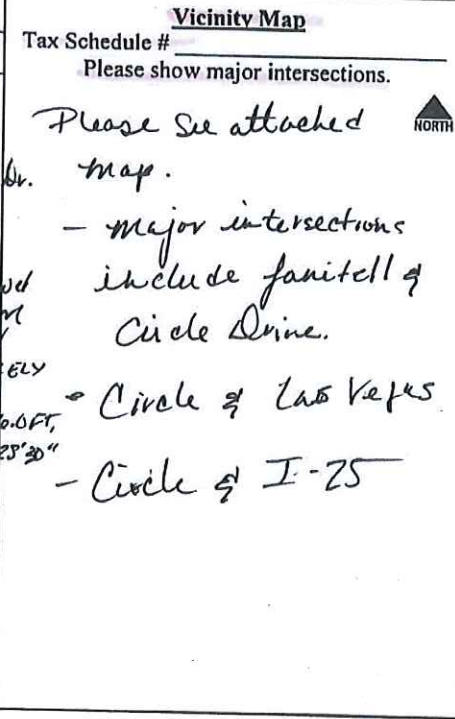 Vicinity Map
Tax Schedule #
Please show major intersections.
NORTH
Please See attached
Dr. map.
- major intersections
include Janitell &
Circle Drive.
ELY
- Circle & Las Vegas
0.0FT,
28'30"
- Circle & I-25